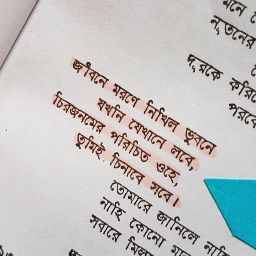 জীবনে মরণে নিখিল ভুবনে
যখনি যেখানে লবে,
চিরজনমের পরিচিত ওহে,
তুমিই চিনাবে সবে।
তোমারে জানিলে নাহি
নাহি কোনো
সবারে
মনে
নূতনের
দূরকে করিলে